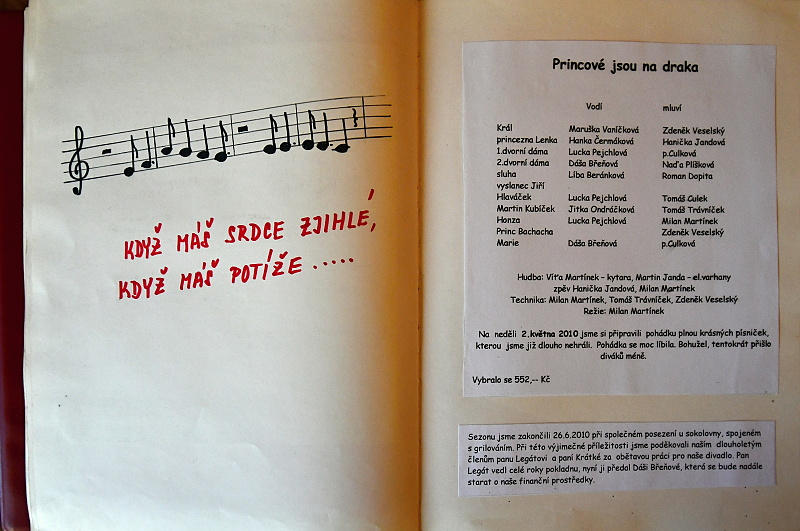 KDYŽ MÁŠ SRDCE ZJIHLÉ,
KDYŽ MÁŠ POTÍŽE .....
Princové jsou na draka
Vodí mluví
Král Maruška Vaníčková Zdeněk Veselský
princezna Lenka Hanka Čermáková Hanička Jandová
1.dvorní dáma Lucka Pejchlová p.Culková
2.dvorní dáma Dáša Břeňová Naďa Plíšková
sluha Líba Beránková Roman Dopita
vyslanec Jiří
Hlaváček Lucka Pejchlová Tomáš Culek
Martin Kubíček Jitka Ondráčková Tomáš Trávníček
Honza Lucka Pejchlová Milan Martínek
Princ Bachacha Zdeněk Veselský
Marie Dáša Břeňová p.Culková
Hudba: Víťa Martínek – kytara, Martin Janda – el.varhany
zpěv Hanička Jandová, Milan Martínek
Technika: Milan Martínek, Tomáš Trávníček, Zdeněk Veselský
Režie: Milan Martínek
Na neděli 2.května 2010 jsme si připravili pohádku plnou krásných písniček,
kterou jsme již dlouho nehráli. Pohádka se moc líbila. Bohužel, tentokrát přišlo
diváků méně.
Vybralo se 552,-- Kč
Sezonu jsme zakončili 26.6.2010 při společném posezení u sokolovny, spojeném
s grilováním. Při této výjimečné příležitosti jsme poděkovali naším dlouholetým
členům panu Legátovi a paní Krátké za obětavou práci pro naše divadlo. Pan
Legát vedl celé roky pokladnu, nyní ji předal Dáši Břeňové, která se bude nadále
starat o naše finanční prostředky.